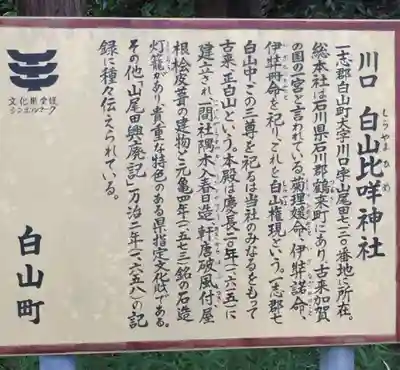 川口 白山比咩神社
しらやまひめ
一志郡白山町大字川口字山尾田七二〇番地に所在。
総本社は石川県石川郡鶴来町にあり、古来加賀
の国の一宮と言われている。菊理媛命、伊弉諾命、
伊弉冊命を祀り、これを白山権現という。一志郡七
白山中、この三尊を祀るは当社のみなるをもって
古来、正白山という。本殿は慶長二〇年(一六一五)に
建立され一間社隅木入春日造、軒唐破風付、屋
根桧皮葺の建物と元亀四年(一五七三)銘の石造
灯籠があり貴重な特色のある県指定文化財である。
その他「山尾田興廃記」万治二年(一六五八)の記
録に種々伝えられている。
白山町
文化財愛護
シンボルマーク